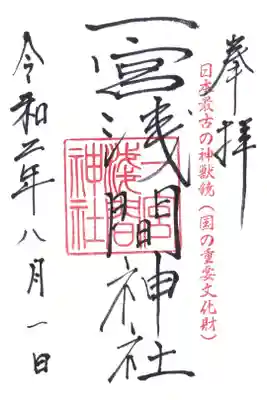 奉拝
日本最古の神獣鏡（国の重要文化財）
一宮浅間神社
一宮浅間神社
令和二年八月一日